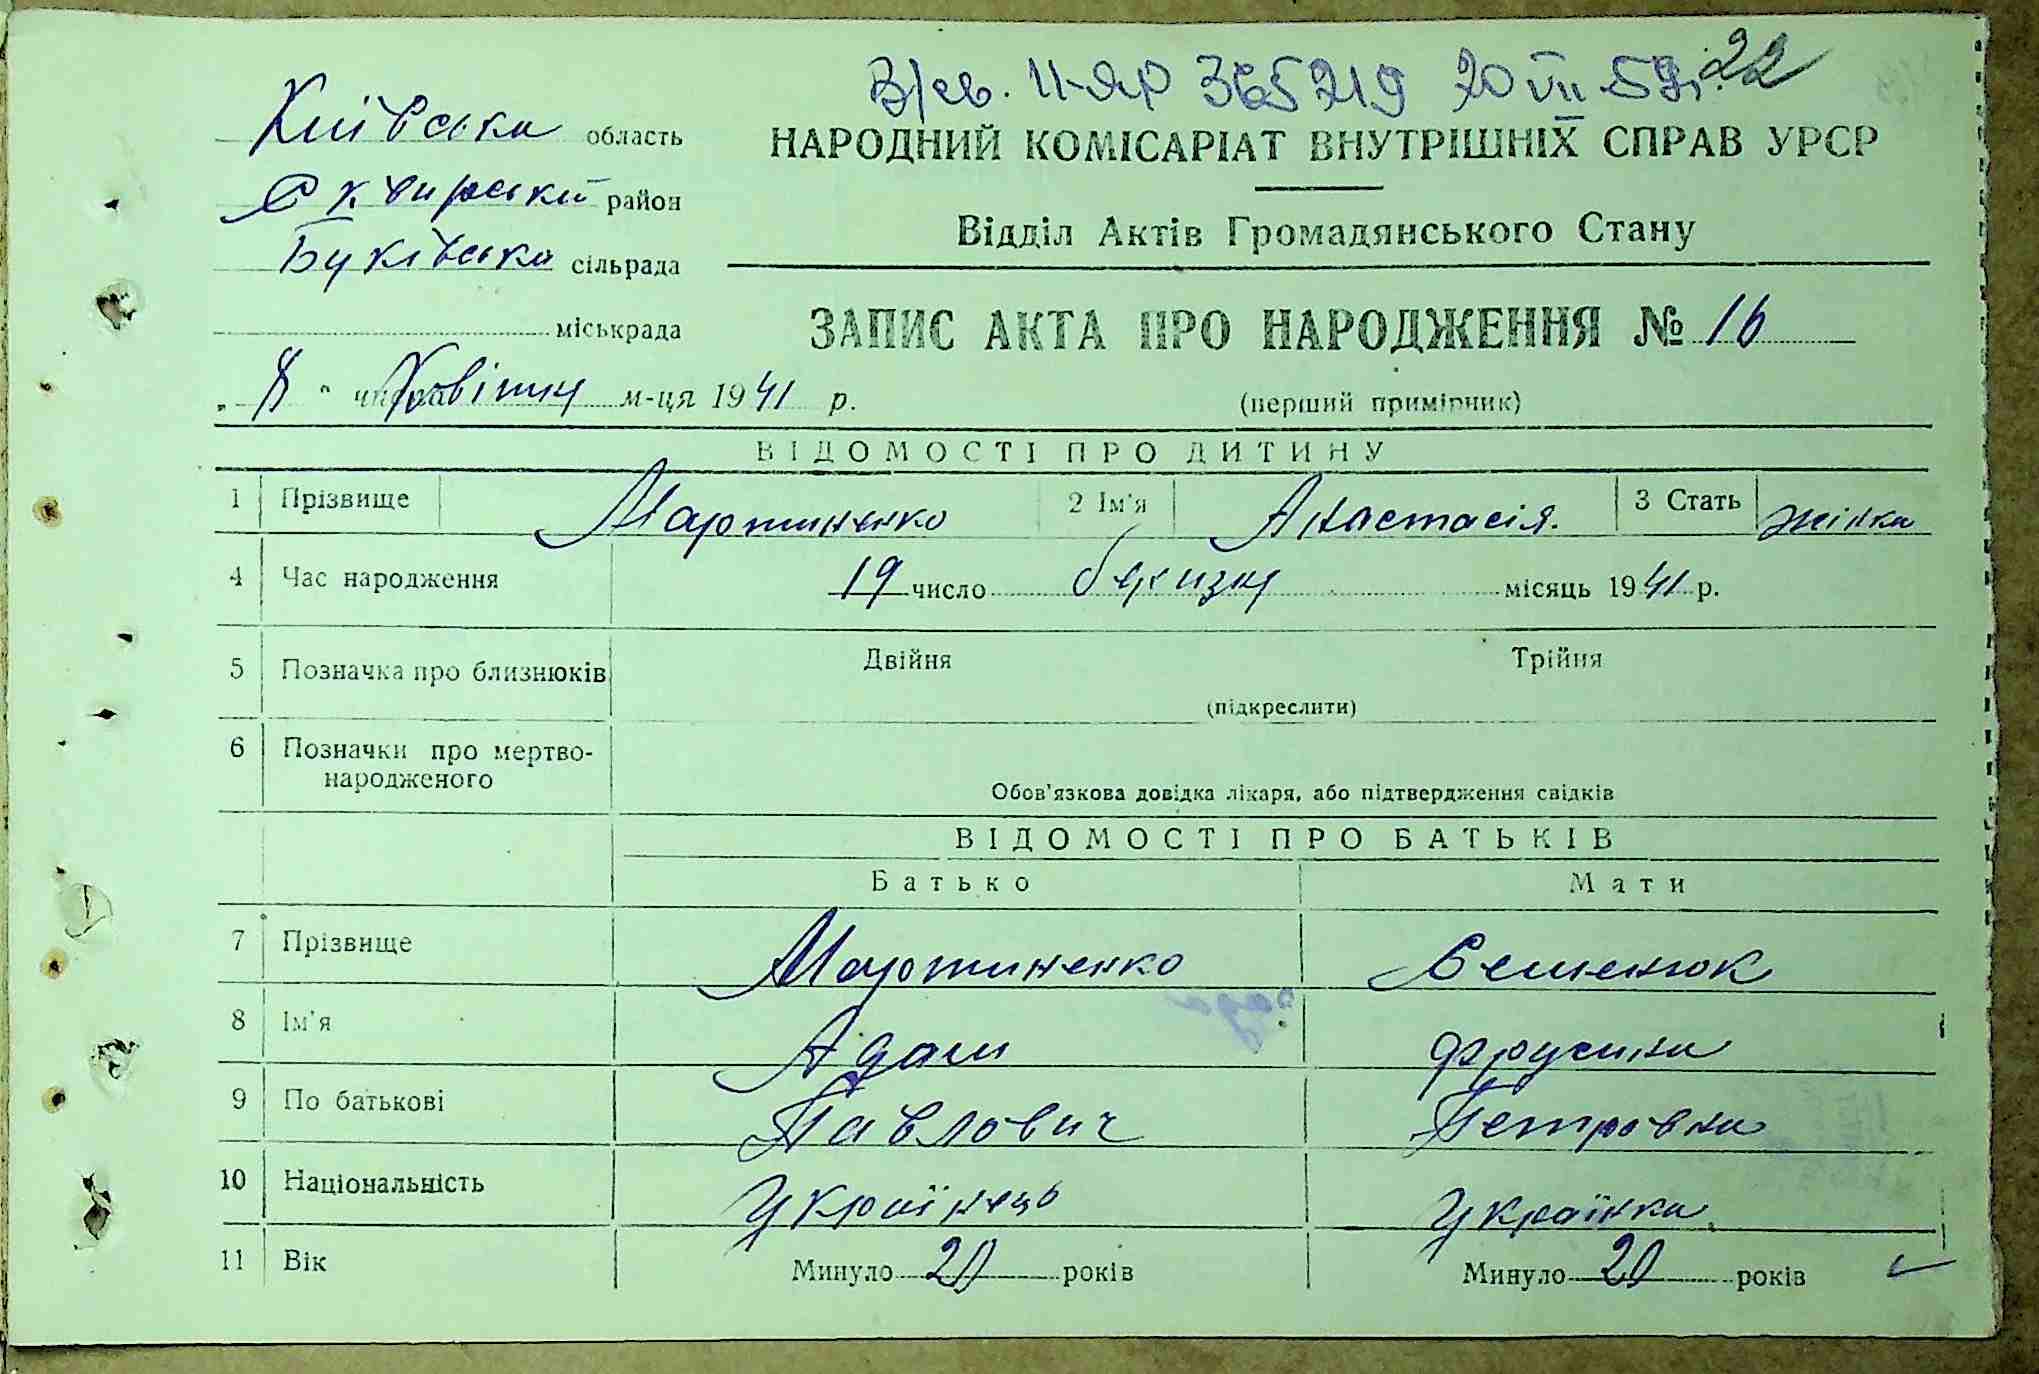 В/св. II-ЯР 365219 20 VII 59г. 22
Київська область
НАРОДНИЙ КОМІСАРІАТ ВНУТРІШНІХ СПРАВ УРСР
Сквирський район
Відділ Актів Громадянського Стану
Буківська сільрада
міськрада
ЗАПИС АКТА ПРО НАРОДЖЕННЯ № 16
„ 8 " числа Квітня м-ця 1941 р.
(перший примірник)
ВІДОМОСТІ ПРО ДИТИНУ
1 Прізвище Мартиненко 2 Ім'я Анастасія. 3 Стать жінка
4 Час народження 19 число березня місяць 1941 р.
5 Позначка про близнюків Двійня Трійня
(підкреслити)
6 Позначки про мертво-
народженого
Обов'язкова довідка лікаря, або підтвердження свідків
ВІДОМОСТІ ПРО БАТЬКІВ
Батько Мати
7 Прізвище Мартиненко Семенюк
8 Ім'я Адам Фрусина
9 По батькові Павлович Петровна
10 Національність Українець Українка
11 Вік Минуло 20 років Минуло 20 років